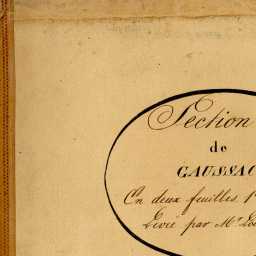 Section
de
GAUSSAC
En deux feuilles 1
Levée par Mr